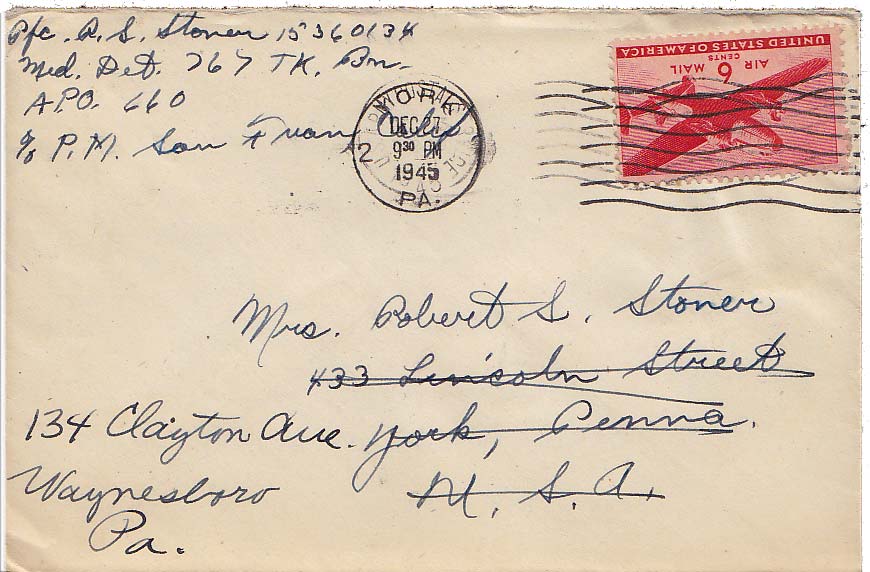 Pfc. R. S. Stoner 15360134
Med. Det. 767 TK. Bn.
APO. 660
c/o P.M. San Fran Calif
YORK
DEC 7
9 30 PM
1945
PA.
2
UNITED STATES OF AMERICA
AIR MAIL
6 CENTS
Mrs. Robert S. Stoner
433 Lincoln Street
York, Penna.
U. S. A.
134 Clayton Ave.
Waynesboro
Pa.